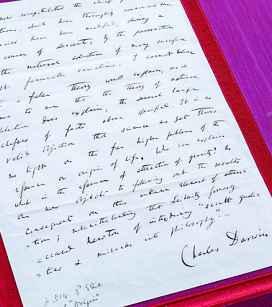 have recapitulated the chief
doubt have thoroughly convinced me
species have been modified, during a
course of descent, by the preservation
the natural selection of many successive
favourable variations. I cannot believe
a false theory would explain, as it
to me that the theory of natural
selection does explain, the several large
classes of facts above specified. It is no
valid objection that science as yet throws
no light on the far higher problem of the
essence or origin of life. Who can explain
what is the essence of attraction of gravity? No
one now objects to following out the results
consequent on this unknown element of
attraction; notwithstanding that Leibnitz formerly
accused Newton of introducing "occult
qualities & miracles into philosophy".—
Charles Darwin